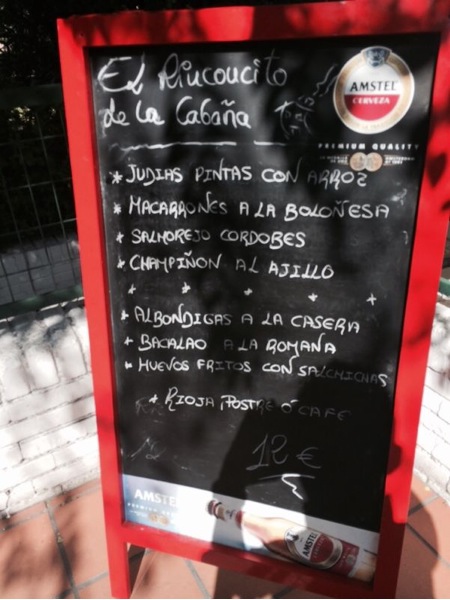 El Rinconcito
de la Cabaña
AMSTEL
CERVEZA
PREMIUM QUALITY
* JUDIAS PINTAS CON ARROZ
* MACARRONES A LA BOLOÑESA
* SALMOREJO CORDOBES
* CHAMPIÑON AL AJILLO
* * * * *
* ALBONDIGAS A LA CASERA
* BACALAO A LA ROMANA
* HUEVOS FRITOS CON SALCHICHAS
* RIOJA, POSTRE Ó CAFE
12 €
AMSTEL
AMSTEL